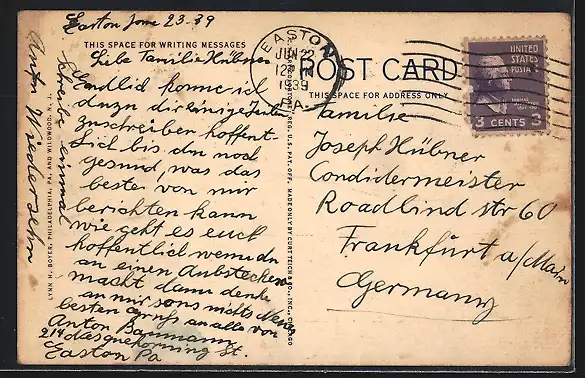 Easton June 23.39
THIS SPACE FOR WRITING MESSAGES
Liebe Familie Hübner
Endlid kome ich
dazu dir einige Zeilen
zuschreiber hoffent-
Lich bis du noch
gesund, was das
beste von mir
berichten kann
wie geht es euch
hoffentlich wenn du
an einen Aubstecken
macht dann denke
an mir sons nichts Neues
besten Gruss an alle von
Anton Baumann
914 Lesquehoning St.
Easton Pa
schreibe einmal
Auton Wiedersehn
LYNN H. BOYER, PHILADELPHIA, PA. AND WILDWOOD, N. J.
REG. U.S. PAT. OFF. MADE ONLY BY CURT TEICH & CO., INC., CHICAGO
EASTON
JUN 22
12
1939
PA.
POST CARD
THIS SPACE FOR ADDRESS ONLY
UNITED
STATES
POSTAGE
3 CENTS 3
Familie
Joseph Hübner
Condidermeister
Roadlind str 60
Frankfurt a/Main
Germany